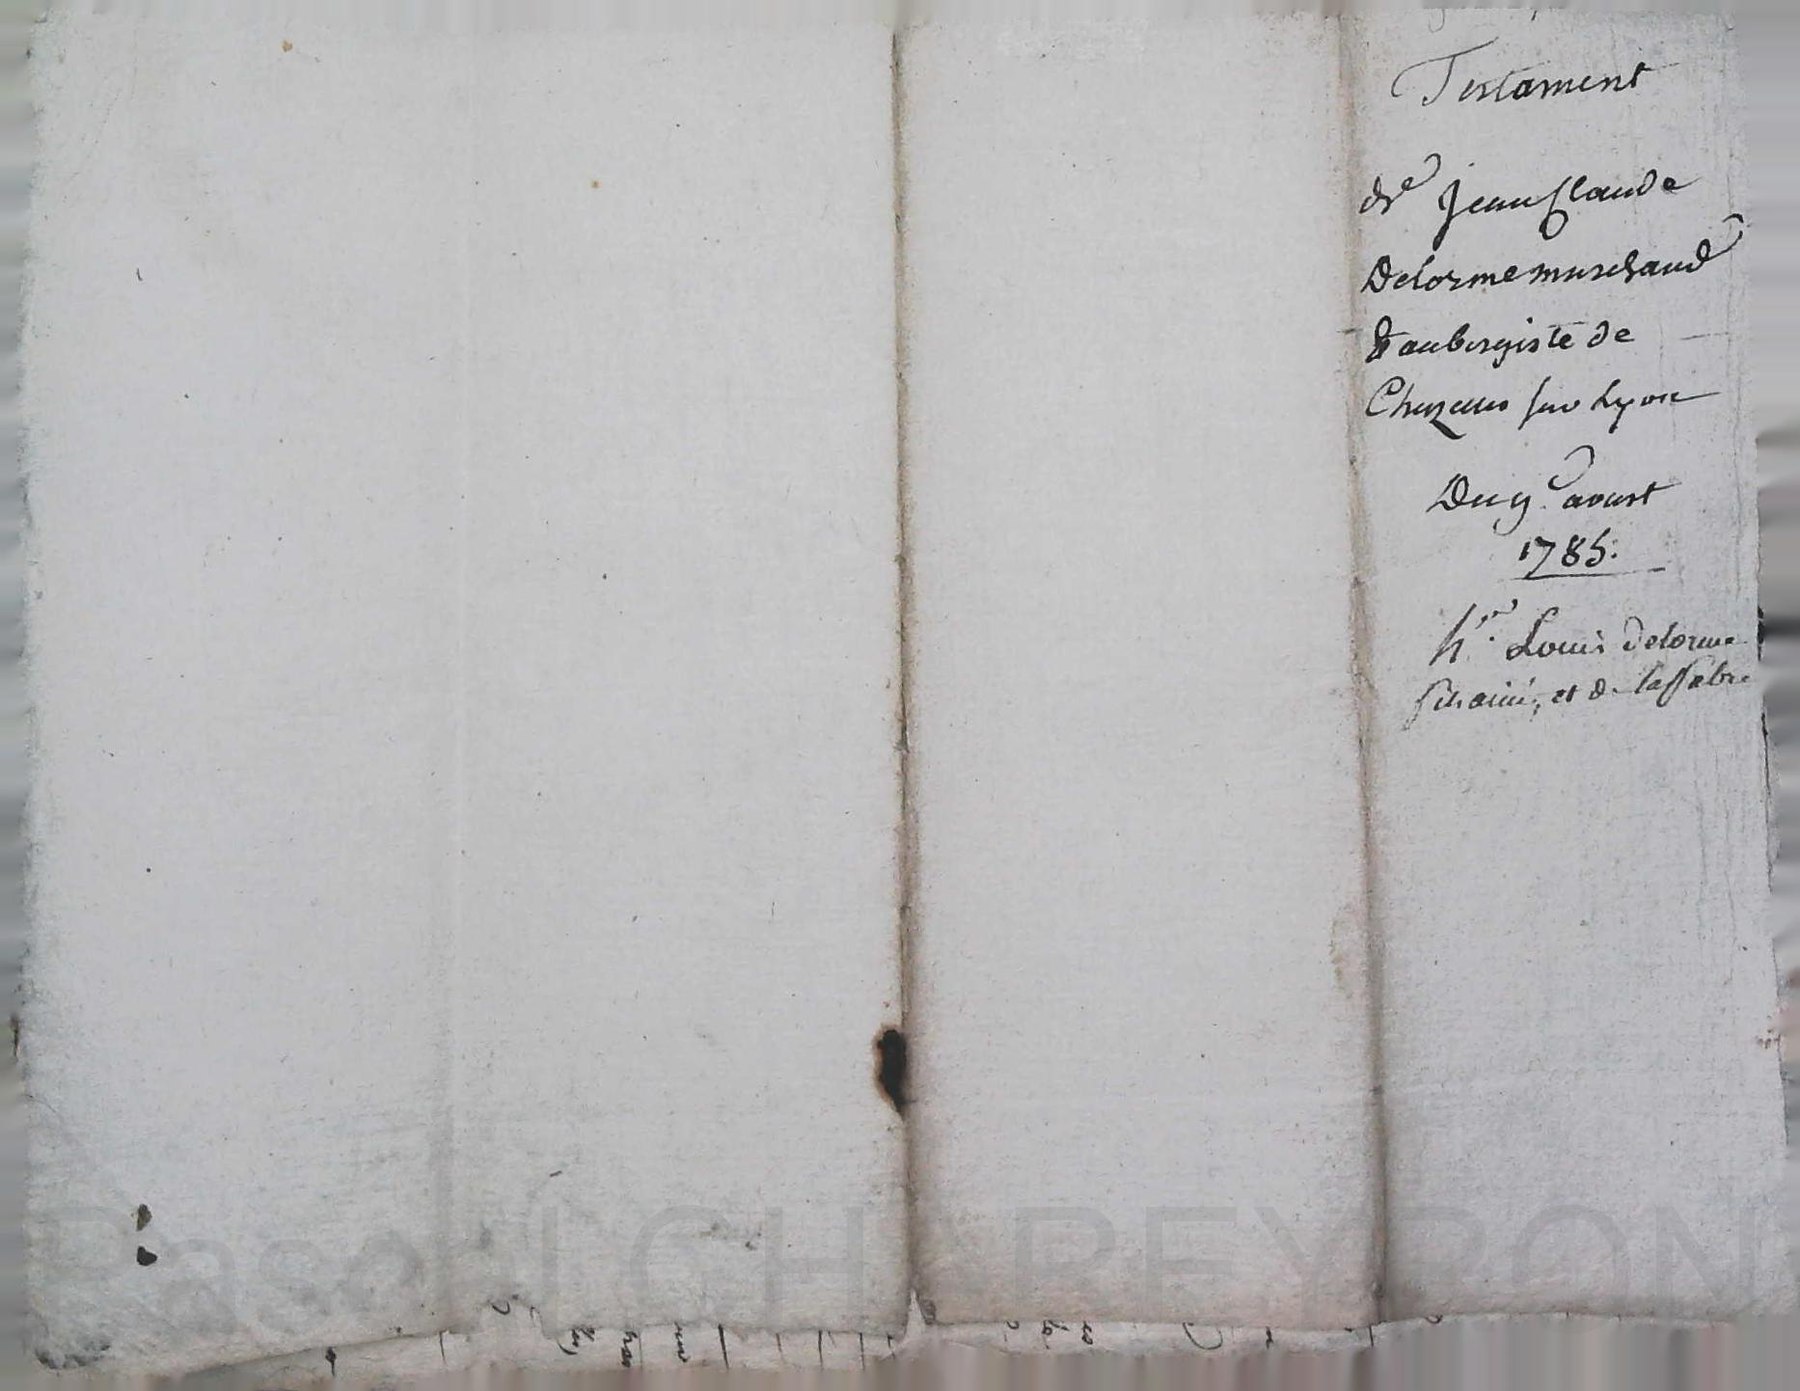 Testament
de Jean Claude
Delorme marchand
& aubergiste de
Chazelles sur Lyon
Du 9e. aoust
1785.
hr. Louis Delorme
fils ainé, et de
Pascal CHAREYRON